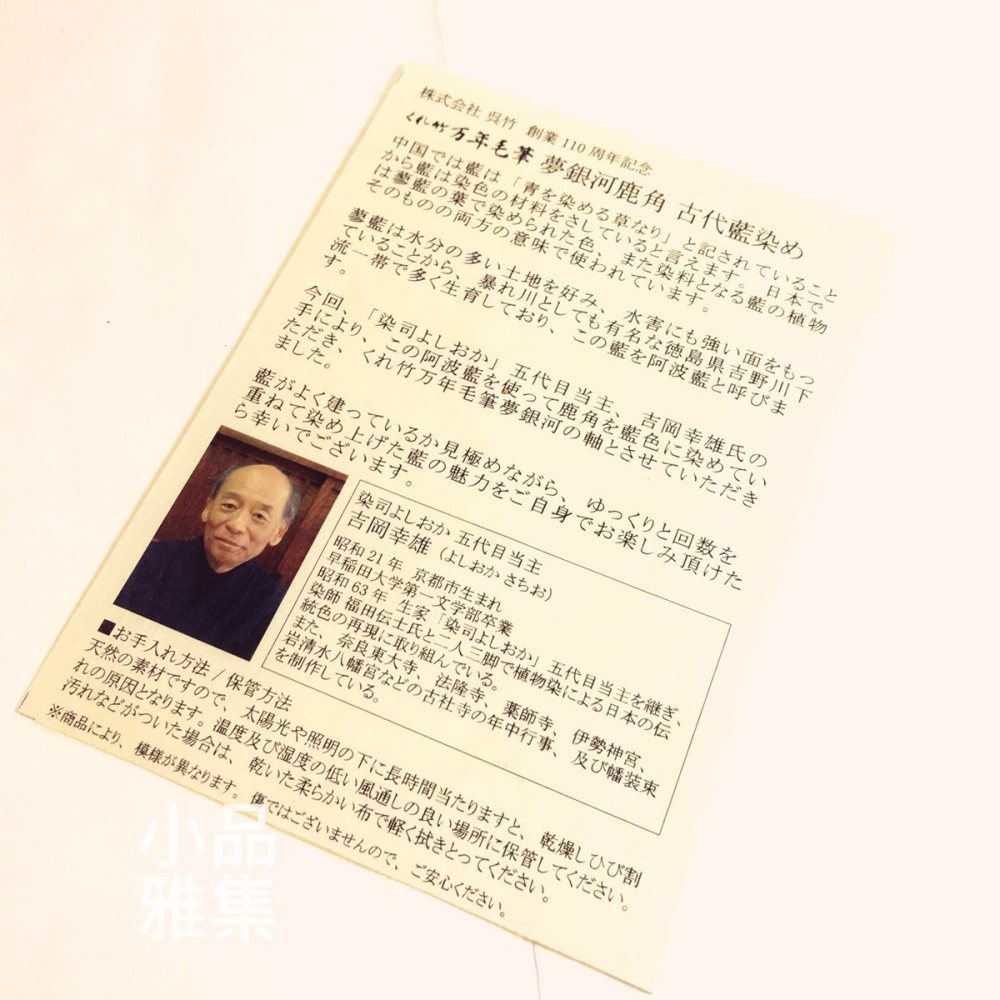 株式会社 呉竹 創業 110 周年記念
くれ竹万年毛筆 夢銀河鹿角 古代藍染め
中国では藍は「青を染める草なり」と記されていること
から藍は染色の材料をさしていると言えます。日本で
は蓼藍の葉で染められた色、また染料となる藍の植物
そのものの両方の意味で使われています。
蓼藍は水分の多い土地を好み、水害にも強い面をもっ
ていることから、暴れ川としても有名な徳島県吉野川下
流一帯で多く生育しており、この藍を阿波藍と呼びま
す。
今回、「染司よしおか」五代目当主、吉岡幸雄氏の
手により、この阿波藍を使って鹿角を藍色に染めてい
ただき、くれ竹万年毛筆夢銀河の軸とさせていただき
ました。
藍がよく建っているか見極めながら、ゆっくりと回数を
重ねて染め上げた藍の魅力をご自身でお楽しみ頂けた
ら幸いでございます。
染司よしおか 五代目当主
吉岡幸雄(よしおか さちお)
昭和 21 年 京都市生まれ
早稲田大学第一文学部卒業
昭和 63 年 生家「染司よしおか」五代目当主を継ぎ、
染師 福田伝士氏と二人三脚で植物染による日本の伝
統色の再現に取り組んでいる。
また、奈良東大寺、法隆寺、薬師寺、伊勢神宮、
岩清水八幡宮などの古社寺の年中行事、及び幡装束
を制作している。
■お手入れ方法 / 保管方法
天然の素材ですので、太陽光や照明の下に長時間当たりますと、乾燥しひび割
れの原因となります。温度及び湿度の低い風通しの良い場所に保管してください。
汚れなどがついた場合は、乾いた柔らかい布で軽く拭きとってください。
※商品により、模様が異なります。傷ではございませんので、ご安心ください。
小品
雅集